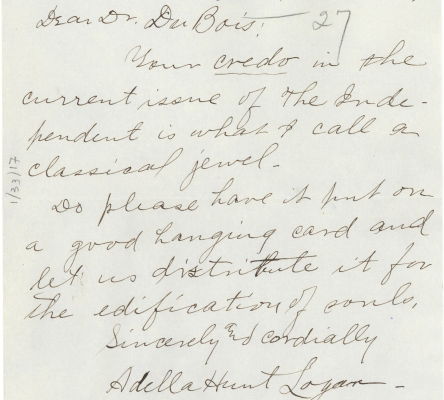 Dear Dr. Du Bois:
27
Your credo in the
current issue of The Inde-
pendent is what I call a
classical jewel.
Do please have it put on
a good hanging card and
let us distribute it for
the edification of souls.
Sincerely and cordially
Adella Hunt Logan
1/33/17